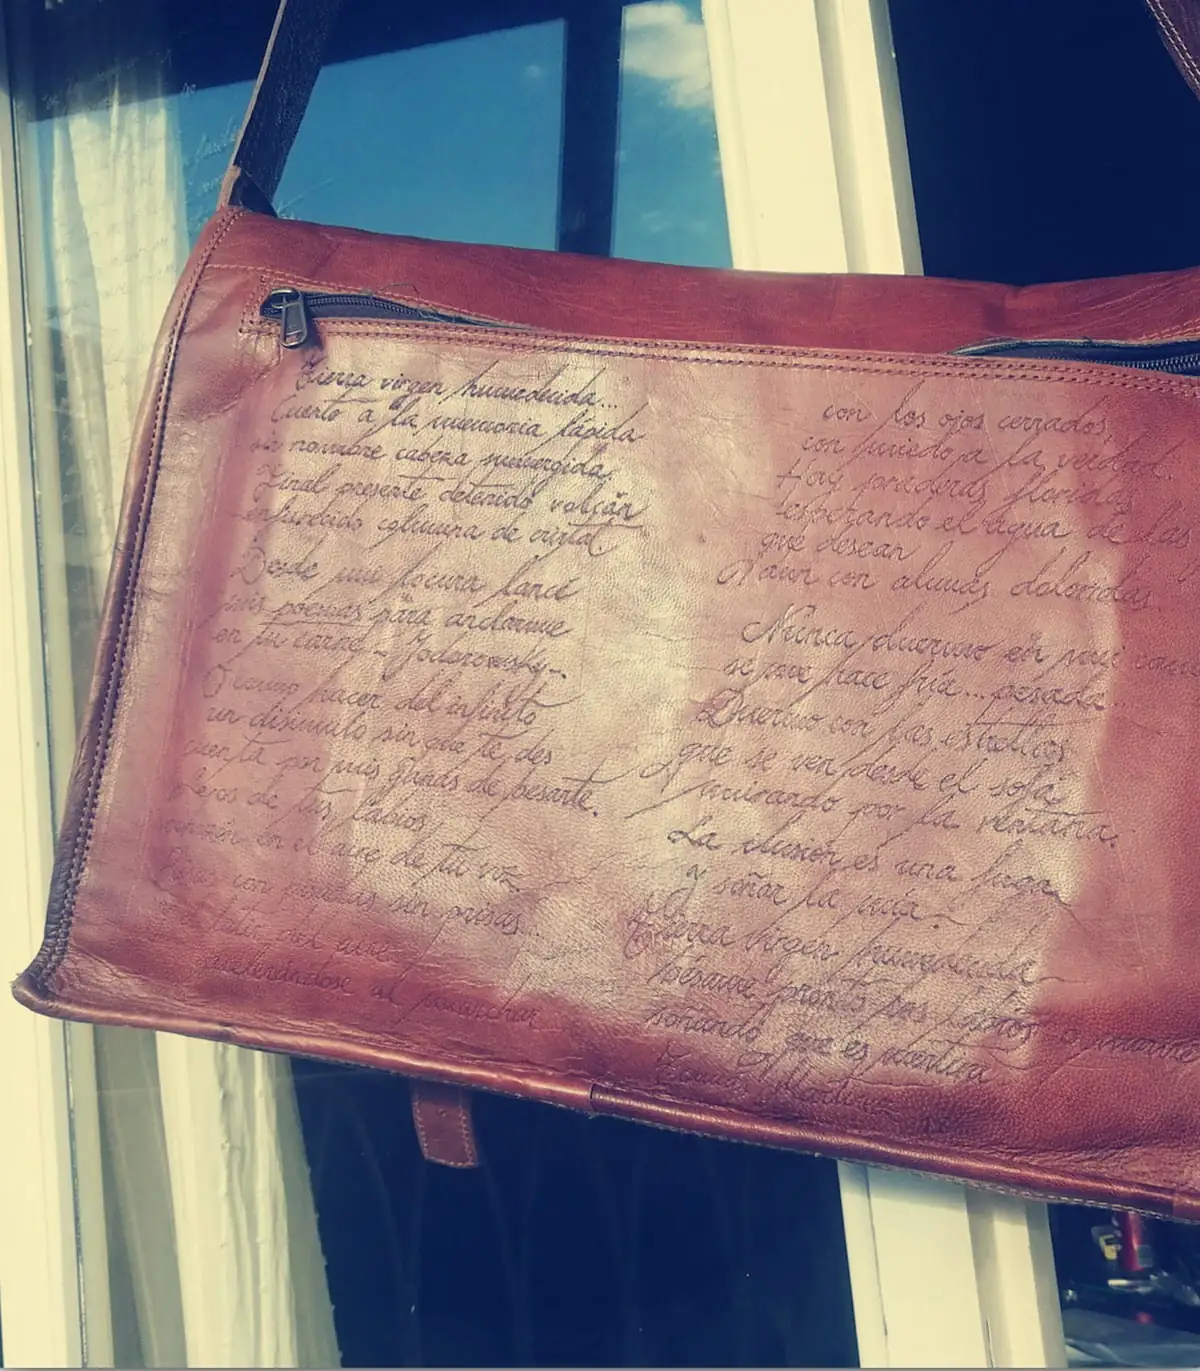 Tierra virgen humedecida...
Cuerto a la memoria lápida
sin nombre cabeza sumergida,
Final presente detenido volcán
enfurecido columna de cristal.
Desde mi locura lancé
mis poemas para anclarme
en tu carne - Jodorowsky-.
Quiero hacer del infinito
un disimulo sin que te des
cuenta por mis ganas de besarte.
Lejos de tus labios
en el aire de tu voz.
con sin prisas...
aire
al
con los ojos cerrados,
con miedo a la verdad.
Hay praderas floridas
esperando el agua de las
que desean
aun con almas doloridas.
Nunca duermo en mi cama
se me hace fría... pesada...
Duermo con las estrellas
que se ven desde el sofá
mirando por la ventana.
La ilusión es una fuga
y soñar la mía.
Tierra virgen humedecida
bésame pronto
soñando que es mentira